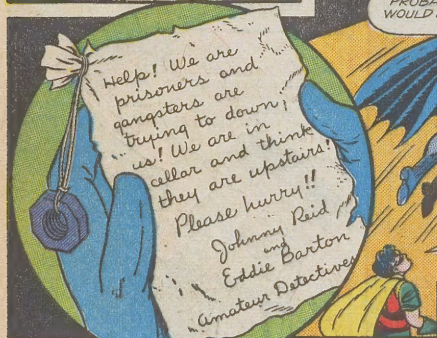 PROBA
WOULD
Help! We are
prisoners and
gangsters are
trying to down
us! We are in
cellar and think
they are upstairs!
Please hurry!!
Johnny Reid
and
Eddie Barton
Amateur Detectives